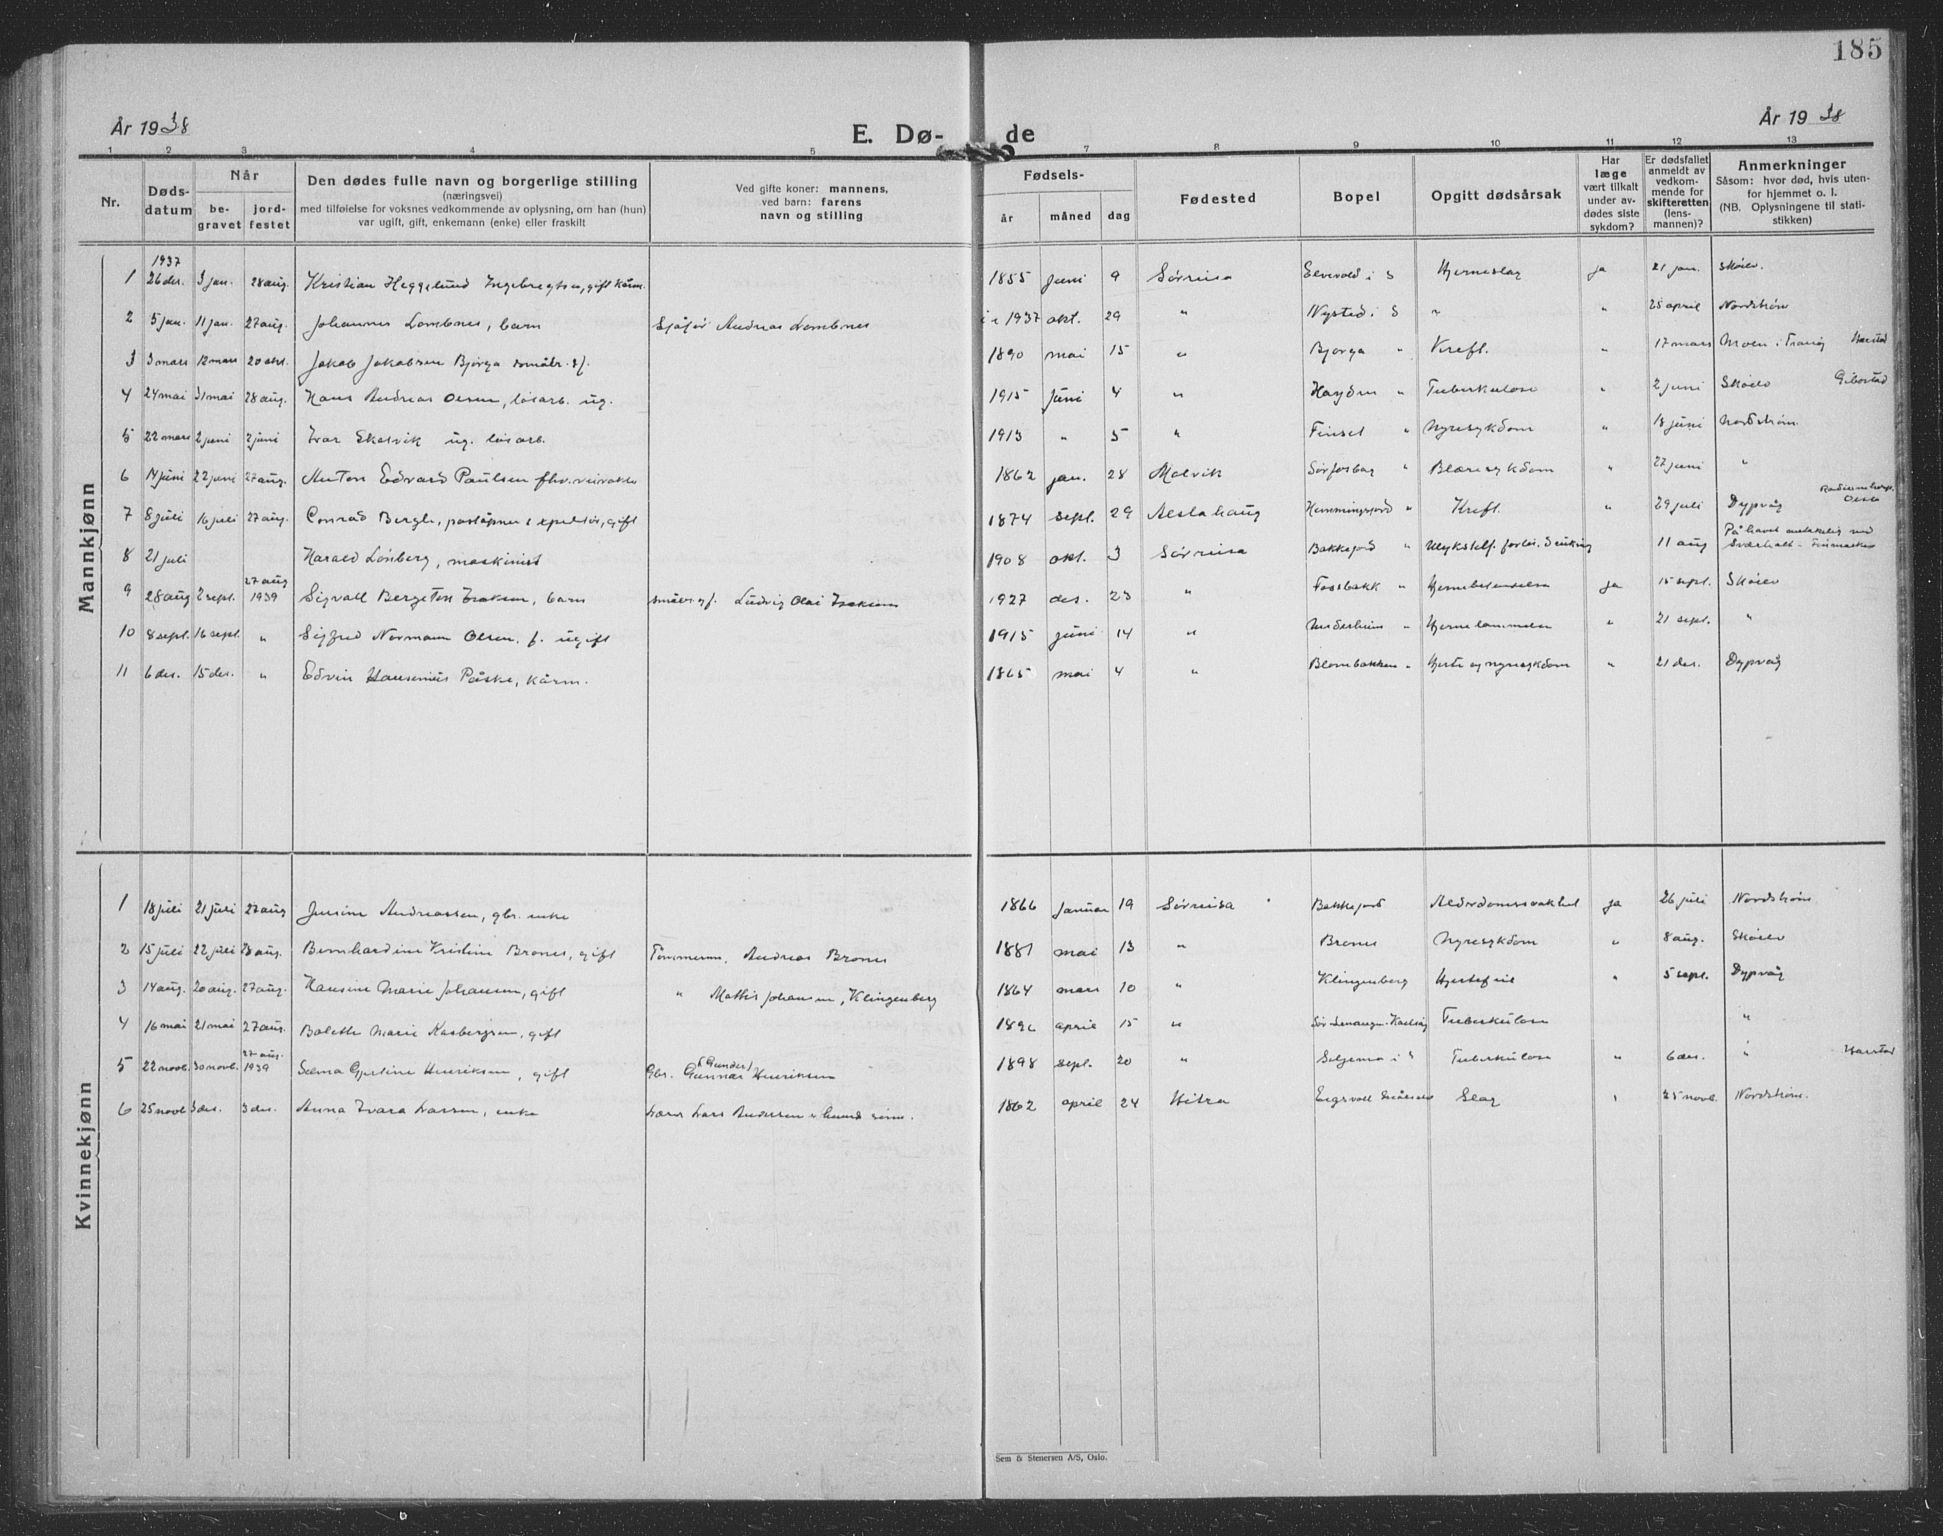 185
År 1938
E. Dø-
de
År 1938
1 2 3 4 5 7 8 9 10 11 12 13
Nr.
Døds-
datum
Når
be-
gravet
jord-
festet
Den dødes fulle navn og borgerlige stilling
(næringsvei)
med tilføielse for voksnes vedkommende av oplysning, om han (hun)
var ugift, gift, enkemann (enke) eller fraskilt
Ved gifte koner: mannens,
ved barn: farens
navn og stilling
Fødsels-
år måned dag
Fødested
Bopel
Opgitt dødsårsak
Har
læge
vært tilkalt
under av-
dødes siste
sykdom?
Er dødsfallet
anmeldt av
vedkom-
mende for
skifteretten
(lens-
mannen)?
Anmerkninger
Såsom: hvor død, hvis uten-
for hjemmet o. l.
(NB. Oplysningene til stati-
stikken)
Mannkjønn
1937
1 26 des. 3 jan. 28 aug. Kristian Heggelund Ingebregtsen, gift kårm. 1855 juni 9 Sørreisa Elvevold i S Hjerneslag ja 21 jan. Skøiev.
2 5 jan. 11 jan. 27 aug. Johannes Lombnes, barn Sjåfør Andreas Lombnes 1937 okt. 29 " Nysted i S " " 25 april Nordstrøm
3 3 mars 12 mars 20 okt. Jakob Jakobsen Bjorga småbr. gf. 1890 mai 15 " Bjorga " Kreft. " 17 mars Moen i Tranøy Harstad
4 24 mai 31 mai 28 aug. Hans Andreas Olsen, løsarb. ug. 1915 juni 4 " " Tuberkulose " 2 juni Skøiev Gibostad
5 22 mars 2 juni 2 juni Ivar Skalvik ug. løsarb. 1913 " 5 " Finset " Nyresykdom " 18 juni Nordstrøm.
6 14 juni 22 juni 27 aug. Anton Edvard Paulsen fhv. veivokter 1862 jan. 28 Malvik " Blæresykdom " 27 juni "
7 8 juli 16 juli 27 aug. Conrad Bergh, poståpner & expeditør, gift 1874 sept. 29 Alstahaug Hemmingsjord " Kreft. " 29 juli Dypvåg Oslo
8 21 juli Harald Lönberg, maskinist 1908 okt. 3 Sørreisa Bakkejord " Ulykkestilf. forlis. Drukning 11 aug På havet
Sværholt - Finmarken
9 28 aug 2 sept. 27 aug
1939 Sigvall Bergeton Isaksen, barn småbr. gf. Ludvig Olai Isaksen 1927 des. 23 " Fossbakk " Hjernebetennelse ja 15 sept. Skøiev
10 8 sept. 16 sept. " Sigfred Normann Olsen. f. ugift 1915 juni 14 " " Hjernelammelse " 21 sept. "
11 6 des. 15 des. " Edvin Hansenius Påske, kårm. 1865 mai 4 " Blombakken " Hjerte og nyresykdom " 21 des. Dypvåg
Kvinnekjønn
1 18 juli 21 juli 27 aug Jensine Andreassen, gbr. enke 1866 januar 19 Sørreisa Bakkejord Alderdomssvakhet ja 26 juli Nordstrøm
2 15 juli 22 juli 28 aug. Bernhardine Kristine Brones, gift Tømmerm. Andreas Brones 1881 mai 13 " Brones Nyresykdom " 8 aug. Skøiev
3 14 aug. 20 aug. 27 aug. Hansine Marie Johansen, gift " Mattis Johansen, Klingenberg 1864 mars 10 " Klingenberg Hjertefeil " 5 sept. Dypvåg
4 16 mai 21 mai 27 aug. Bolette Marie Kasbergsen, gift april 15 " Sør-Lenangen - Karlsøy Tuberkulose "
5 22 novb. 30 novb. 27 aug.
1939 Selma Gjertine Henriksen, gift Gbr. Gunnar (Gunder) Henriksen 1898 sept. 20 " Seljemo i S Tuberkulose " 6 des. " Harstad
6 25 novb 3 des. 3 des. Anna Ivara Larsen, enke Lars Andersen 1862 april 24 Hitra Eigsvoll Målselv Slag 25 novb. Nordstrøm.
Sem & Stenersen A/S, Oslo.